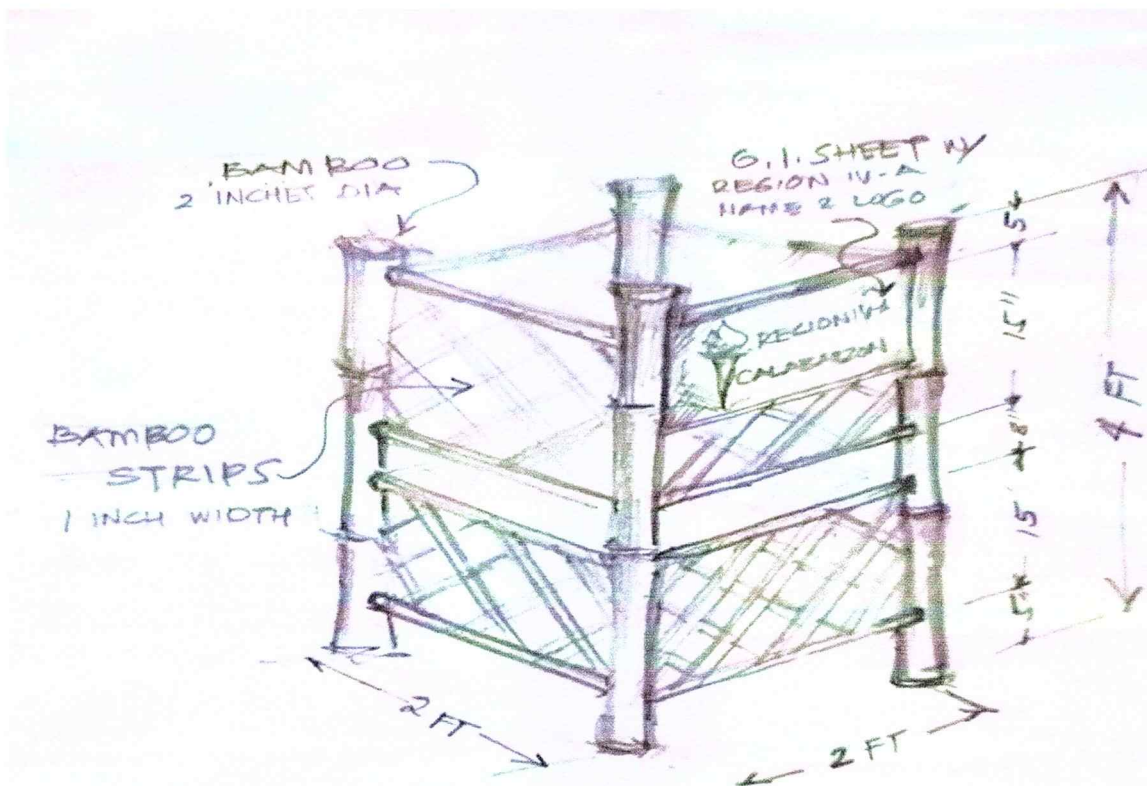 BAMBOO
2 INCHES DIA
G.I. SHEET W/
REGION IV-A
NAME & LOGO
REGION IV-A
CALABARZON
BAMBOO
STRIPS
1 INCH WIDTH
5"
15"
8"
15
5"
4 FT
2 FT
2 FT